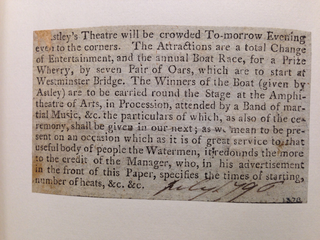 stley's Theatre will be crowded To-morrow Evening
even to the corners. The Attractions are a total Change
of Entertainment, and the annual Boat Race, for a Prize
Wherry, by seven Pair of Oars, which are to start at
Westminster Bridge. The Winners of the Boat (given by
Astley) are to be carried round the Stage at the Amphi-
theatre of Arts, in Procession, attended by a Band of mar-
tial Music, &c. the particulars of which, as also of the ce-
remony, shall be given in our next; as we mean to be pre-
sent on an occasion which as it is of great service to that
useful body of people the Watermen, it redounds the more
to the credit of the Manager, who, in his advertisement
in the front of this Paper, specifies the times of starting,
number of heats, &c. &c.
July 1796